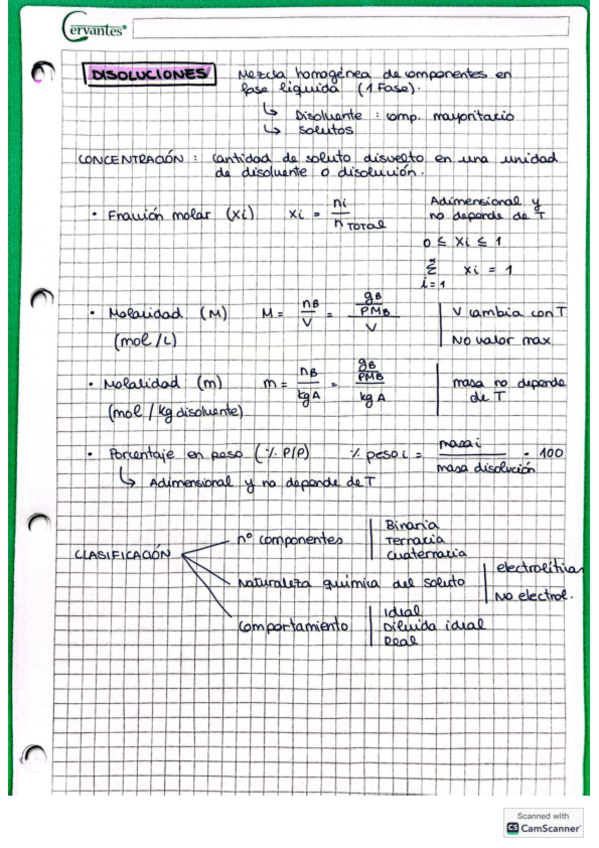 Cervantes®
DISOLUCIONES Mezcla homogénea de componentes en
fase líquida (1 Fase).
↳ Disolvente : comp. mayoritario
↳ Solutos
CONCENTRACIÓN : Cantidad de soluto disuelto en una unidad
de disolvente o disolución.
• Fracción molar (xi) xi = ni / n TOTAL Adimensional y
no depende de T
0 ≤ xi ≤ 1
Σ i=1 xi = 1
• Molaridad (M) M = nB / V = (gB / PMB) / V V cambia con T
(mol/L) No valor max
• Molalidad (m) m = nB / kg A = (gB / PMB) / kg A masa no depende
(mol / kg disolvente) de T
• Porcentaje en peso (% P/P) % peso i = masa i / masa disolución · 100
↳ Adimensional y no depende de T
CLASIFICACIÓN
nº componentes
Binaria
Ternaria
Cuaternaria
Naturaleza química del soluto
electrolíticas
No electrol.
Comportamiento
Ideal
Diluida ideal
Real
Scanned with
CS CamScanner